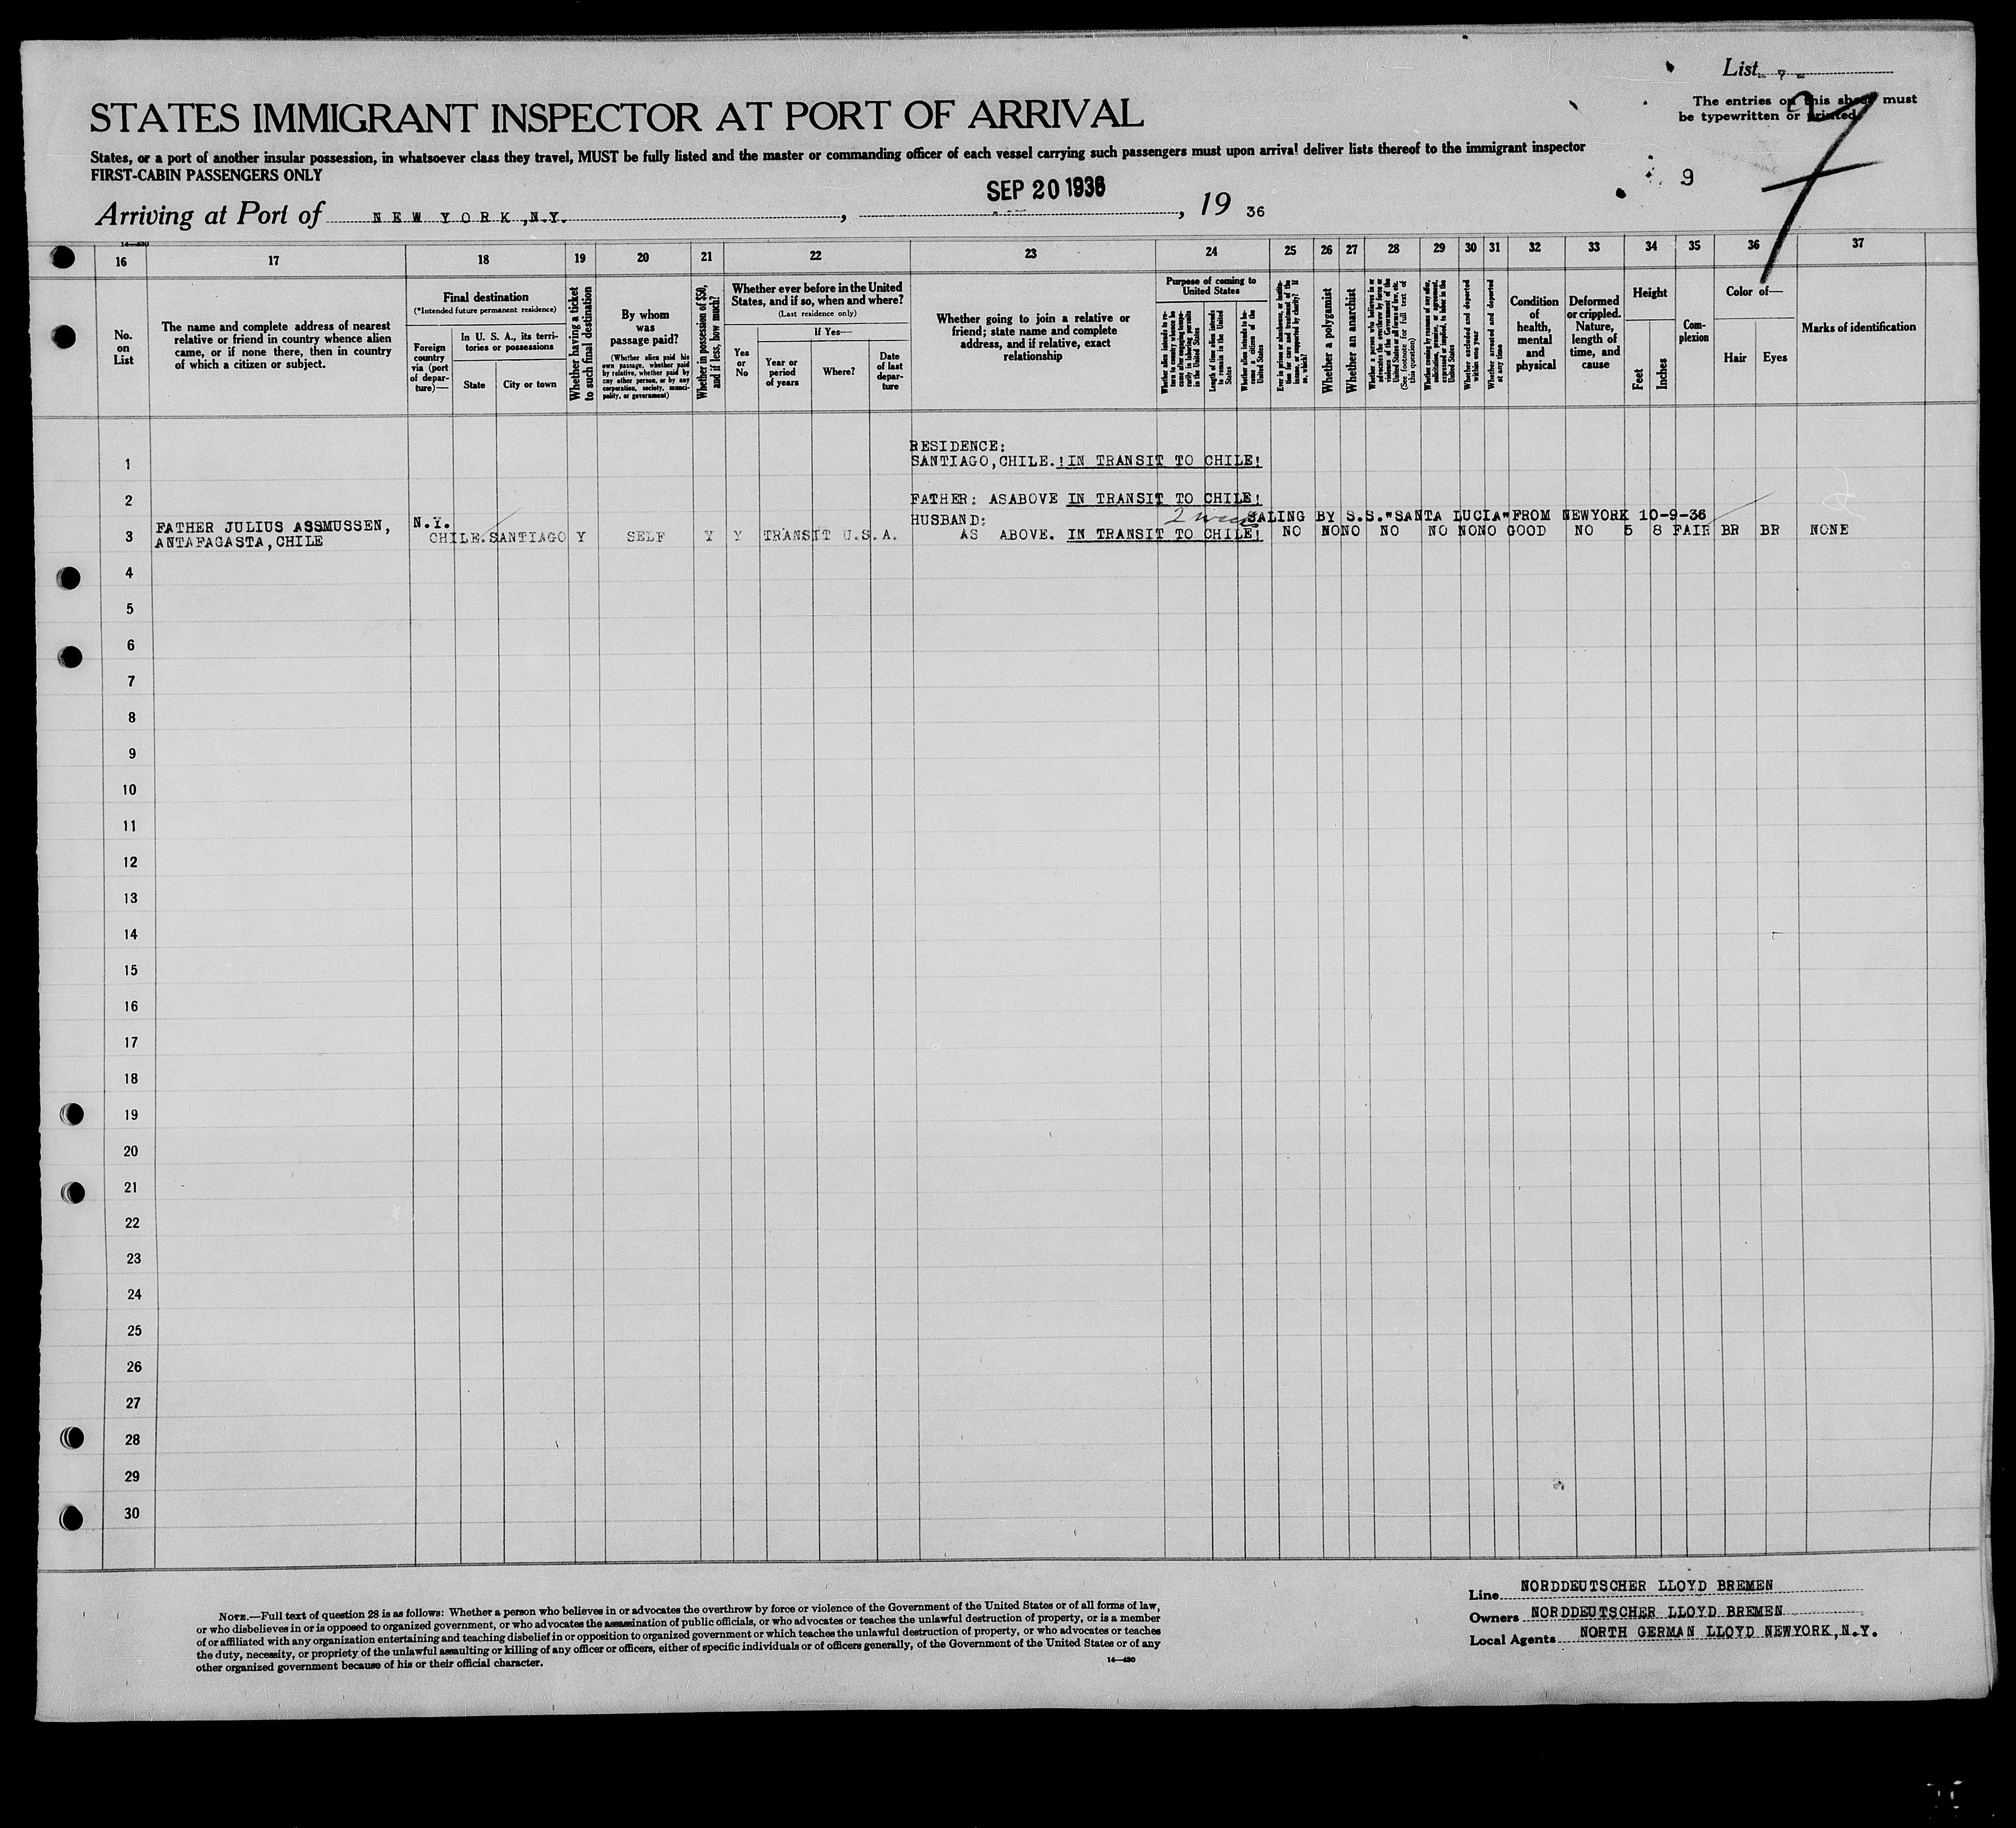 List 7
STATES IMMIGRANT INSPECTOR AT PORT OF ARRIVAL
The entries on this sheet must
be typewritten or printed.
States, or a port of another insular possession, in whatsoever class they travel, MUST be fully listed and the master or commanding officer of each vessel carrying such passengers must upon arrival deliver lists thereof to the immigrant inspector
FIRST-CABIN PASSENGERS ONLY
9
SEP 20 1936
Arriving at Port of NEW YORK, N.Y. , , 19 36
14-430
16 17 18 19 20 21 22 23 24 25 26 27 28 29 30 31 32 33 34 35 36 37
No.
on
List
The name and complete address of nearest
relative or friend in country whence alien
came, or if none there, then in country
of which a citizen or subject.
Final destination
(*Intended future permanent residence)
Foreign
country
via (port
of depar-
ture)—
In U. S. A., its terri-
tories or possessions
State
City or town
Whether having a ticket
to such final destination
By whom
was
passage paid?
(Whether alien paid his
own passage, whether paid
by relative, whether paid by
any other person, or by any
corporation, society, munici-
pality, or government)
Whether in possession of $50,
and if less, how much?
Whether ever before in the United
States, and if so, when and where?
(Last residence only)
Yes
or
No
If Yes—
Year or
period
of years
Where?
Date
of last
depar-
ture
Whether going to join a relative or
friend; state name and complete
address, and if relative, exact
relationship
Purpose of coming to
United States
Whether alien intends to re-
turn to country whence he
came after engaging tempo-
rarily in laboring pursuits
in the United States
Length of time alien intends
to remain in the United
States
Whether alien intends to be-
come a citizen of the
United States
Ever in prison or almshouse, or institu-
tion for care and treatment of the
insane, or supported by charity? If
so, which?
Whether a polygamist
Whether an anarchist
Whether a person who believes in or
advocates the overthrow by force or
violence of the Government of the
United States or all forms of law, etc.
(See footnote for full text of
this question)
Whether coming by reason of any offer,
solicitation, promise, or agreement,
expressed or implied, to labor in the
United States
Whether excluded and deported
within one year
Whether arrested and deported
at any time
Condition
of
health,
mental
and
physical
Deformed
or crippled.
Nature,
length of
time, and
cause
Height
Feet
Inches
Com-
plexion
Color of—
Hair
Eyes
Marks of identification
RESIDENCE:
1 SANTIAGO,CHILE.!IN TRANSIT TO CHILE!
2 FATHER: ASABOVE IN TRANSIT TO CHILE!
N.Y. HUSBAND: SALING BY S.S."SANTA LUCIA"FROM NEWYORK 10-9-36
FATHER JULIUS ASSMUSSEN,
3 ANTAFAGASTA,CHILE CHILE.SANTIAGO Y SELF Y Y TRANSIT U.S.A. AS ABOVE. IN TRANSIT TO CHILE! NO NO NO NO NO NO NO GOOD NO 5 8 FAIR BR BR NONE
4
5
6
7
8
9
10
11
12
13
14
15
16
17
18
19
20
21
22
23
24
25
26
27
28
29
30
NOTE.—Full text of question 28 is as follows: Whether a person who believes in or advocates the overthrow by force or violence of the Government of the United States or of all forms of law,
or who disbelieves in or is opposed to organized government, or who advocates the assassination of public officials, or who advocates or teaches the unlawful destruction of property, or is a member
of or affiliated with any organization entertaining and teaching disbelief in or opposition to organized government or which teaches the unlawful destruction of property, or who advocates or teaches
the duty, necessity, or propriety of the unlawful assaulting or killing of any officer or officers, either of specific individuals or of officers generally, of the Government of the United States or of any
other organized government because of his or their official character.
14—430
Line NORDDEUTSCHER LLOYD BREMEN
Owners NORDDEUTSCHER LLOYD BREMEN
Local Agents NORTH GERMAN LLOYD NEWYORK,N.Y.